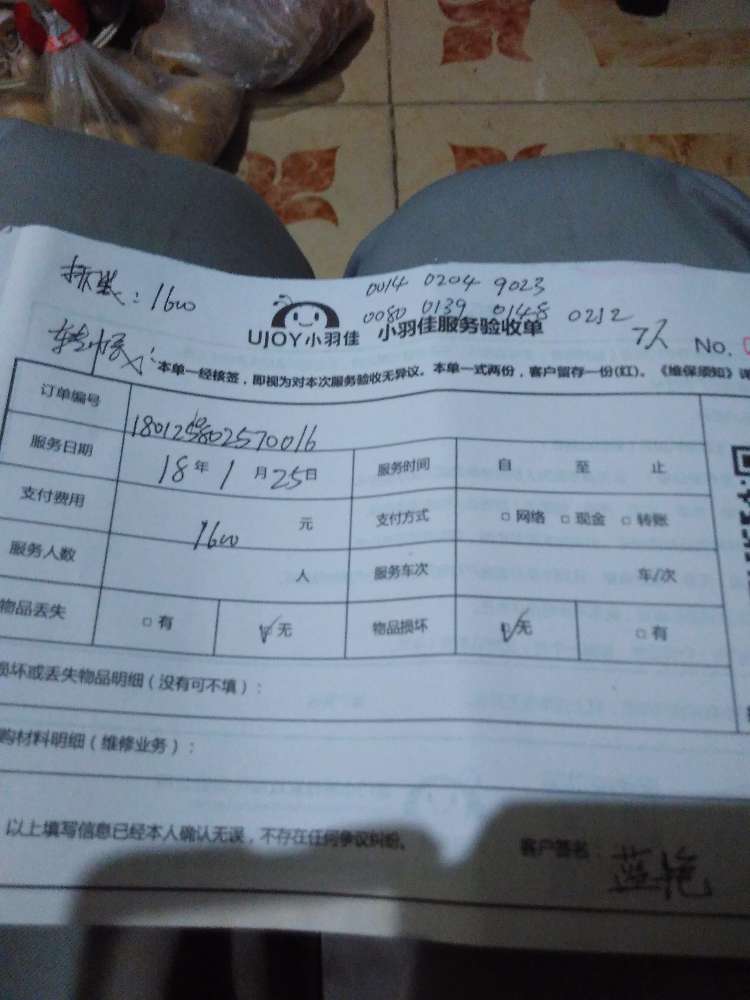 拆装：1600
0014 0204 9023
0080 0139 0148 0212
7人
UJOY小羽佳 小羽佳服务验收单 No.
本单一经接签，即视为对本次服务验收无异议。本单一式两份，客户留存一份(红)。《维保须知》详
订单编号
服务日期 18年1月25日 服务时间 自 至 止
支付费用 1600 元 支付方式 □网络 □现金 □转账
服务人数 人 服务车次 车/次
物品丢失 □有 ☑无 物品损坏 ☑无 □有
损坏或丢失物品明细（没有可不填）：
购材料明细（维修业务）：
以上填写信息已经本人确认无误，不存在任何争议纠纷。 客户签名：